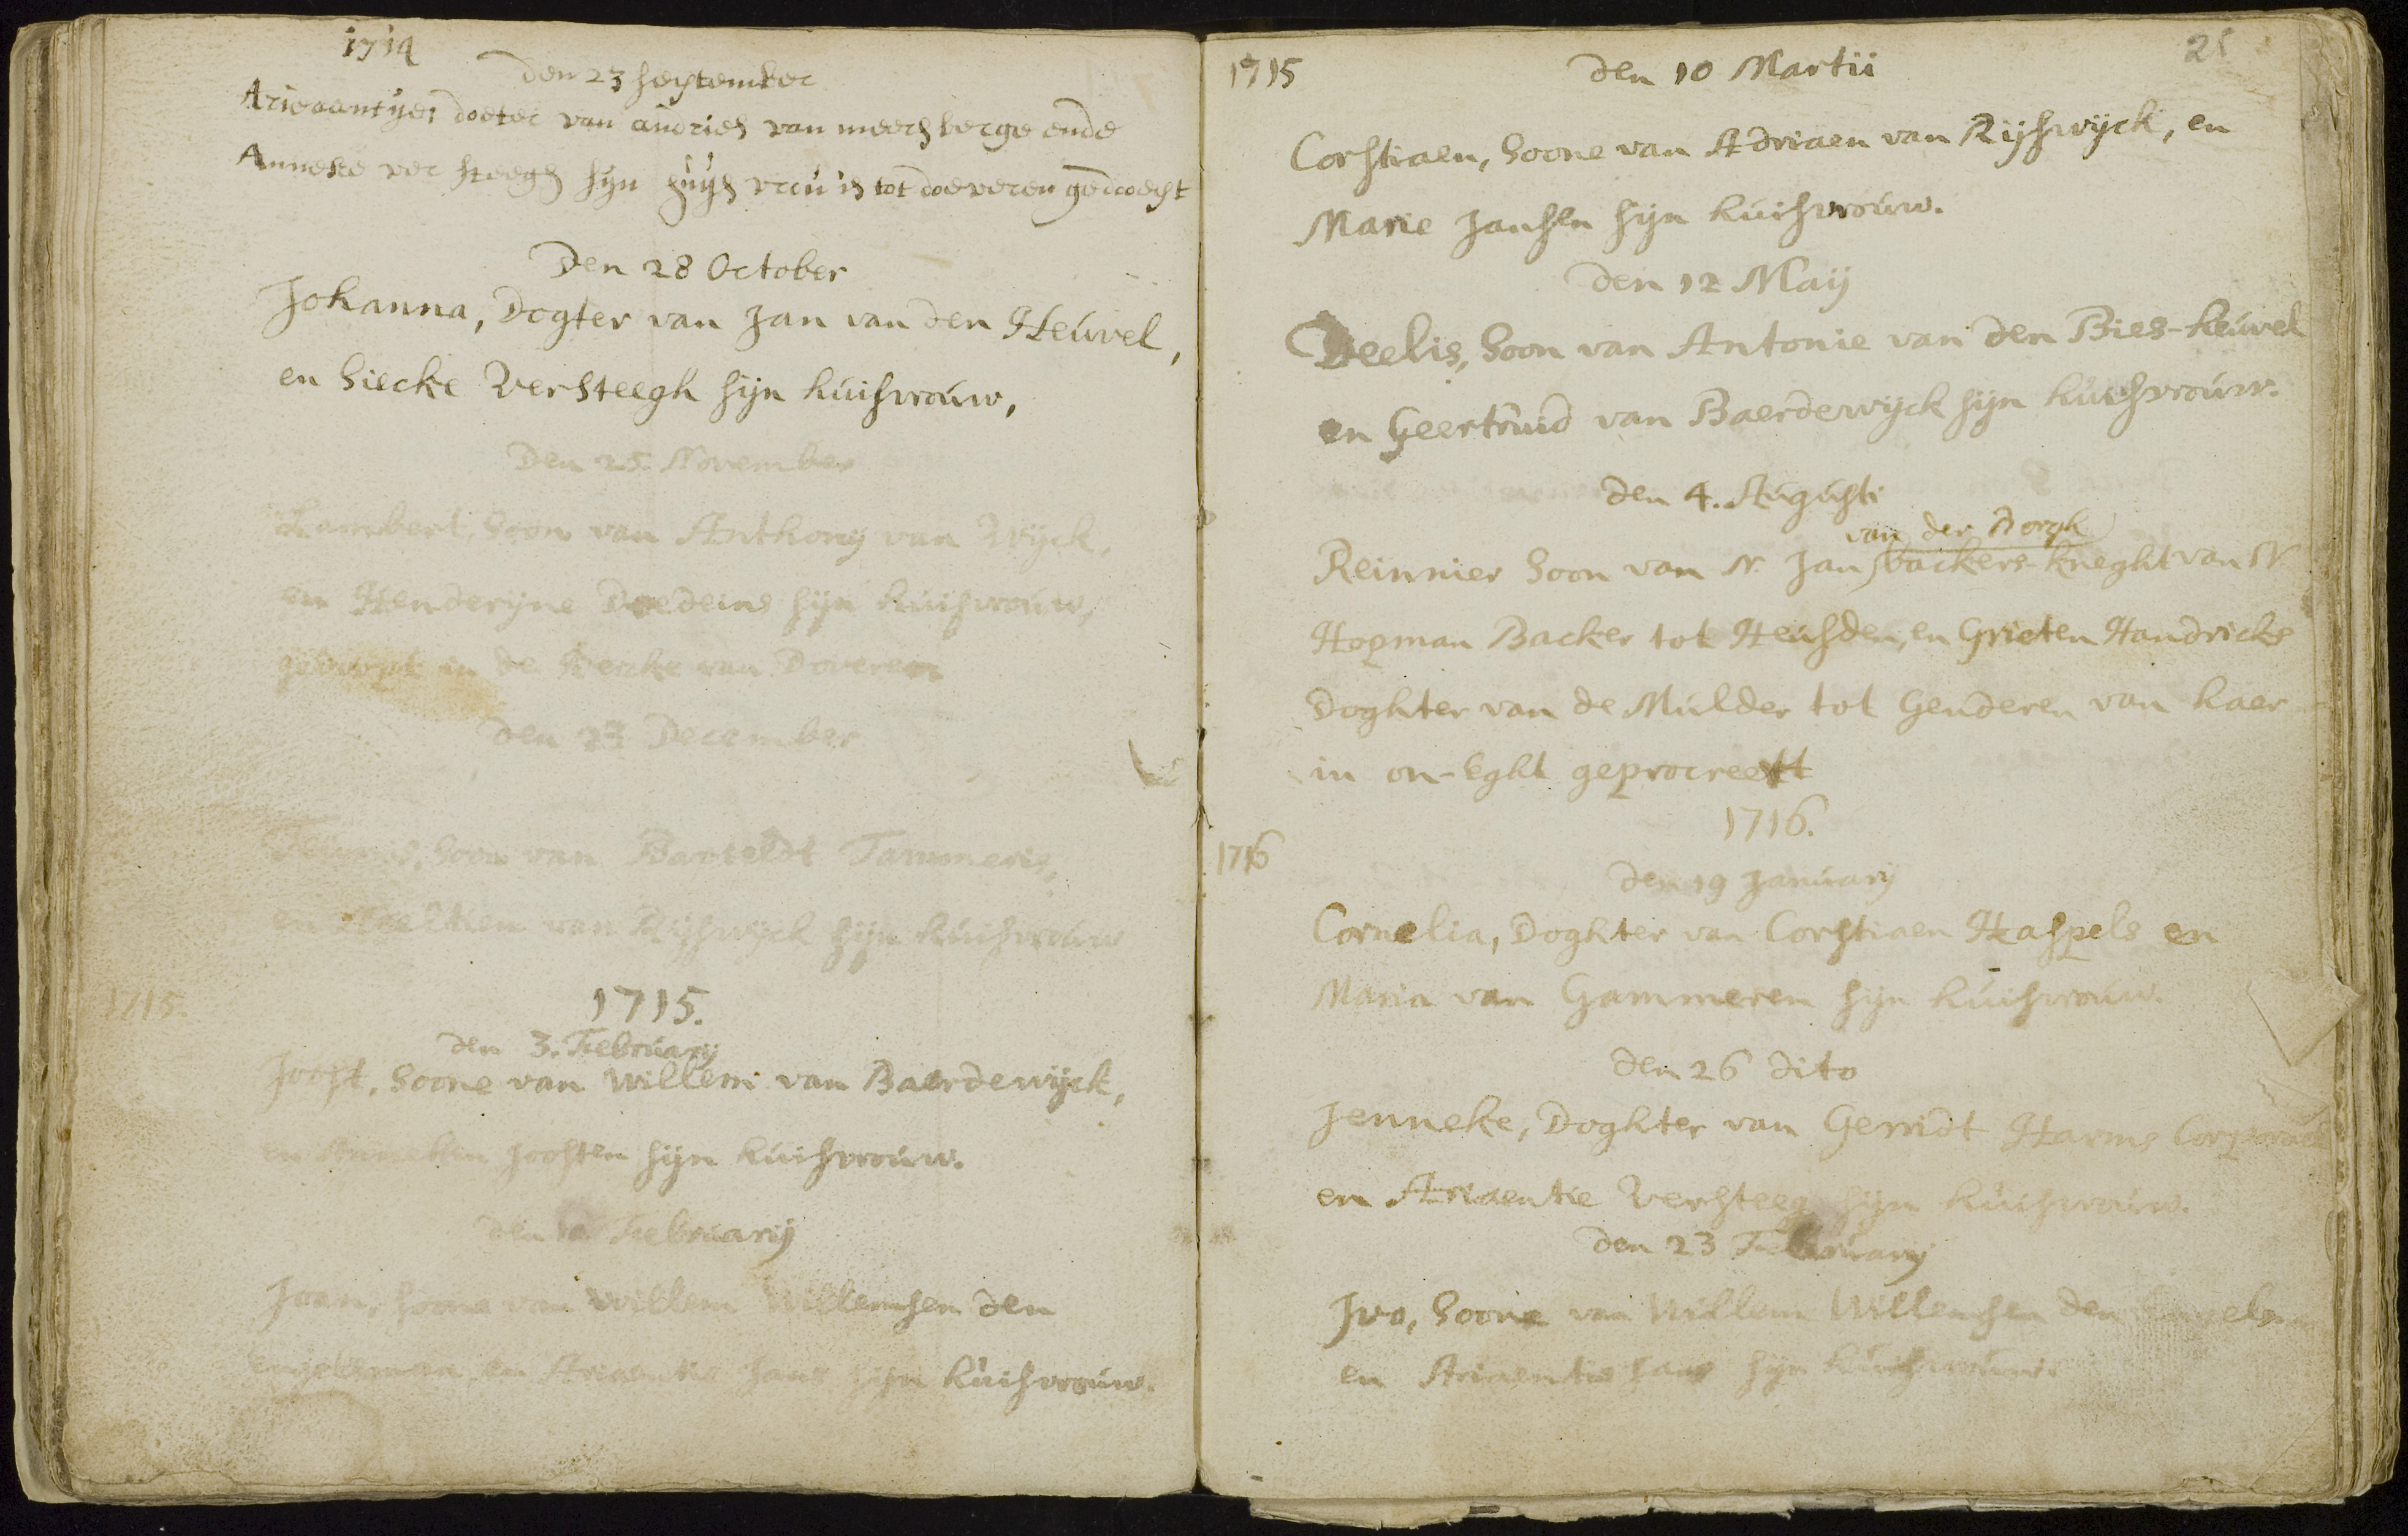 1714
den 23 september
Arieaantye doeter van andries van meersberge ende
Anneke ver steegh syn huys vrou is tot doeveren gedoopt
Den 28 October
Johanna, Dogter van Jan van den Heuvel,
en Siecke Versteegh sijn huisvrouw,
Den 25 November
Lambert, Soon van Anthonij van Wijck,
en Henderijne Doedeins sijn huisvrouw,
gedoopt in de Kercke van Doveren
Den 23 December
Soon van Barteldt Tammeris,
en van Rijswijck sijn huisvrouw
1715.
1715.
den 3. Februarij
Joost, Soone van Willem van Baerdewijck,
en Anneken Joosten sijn huisvrouw.
den Februarij
Joan, soone van Willem Willemsen den
Engelsman, en Ariaentie Jans sijn huisvrouw.
25
1715
den 10 Martii
Corstiaen, Soone van Adriaen van Rijswijck, en
Marie Jansen sijn huisvrouw.
den 12 Maij
Deelis, Soon van Antonie van den Bies-heuvel
en Geertruid van Baerdewijck sijn huisvrouw.
den 4. Augusti
van der Borgh
Reinnier Soon van N. Jan backers-kneght van N.
Hopman Backer tot Heusden, en Grieten Handricks
Doghter van de Mulder tot Genderen van haer
in on-Eght geprocreett
1716.
1716
den 19 January
Cornelia, Doghter van Corstiaen Haspels en
Maria van Gammeren sijn huisvrouw.
den 26 dito
Jenneke, Doghter van Gerridt Harms Corporael
en Ariaentie Versteeg sijn huisvrouw.
den 23 Februarij
Ivo, Soone van Willem Willemsen den Engels
en Ariaentie Jans sijn huisvrouw.